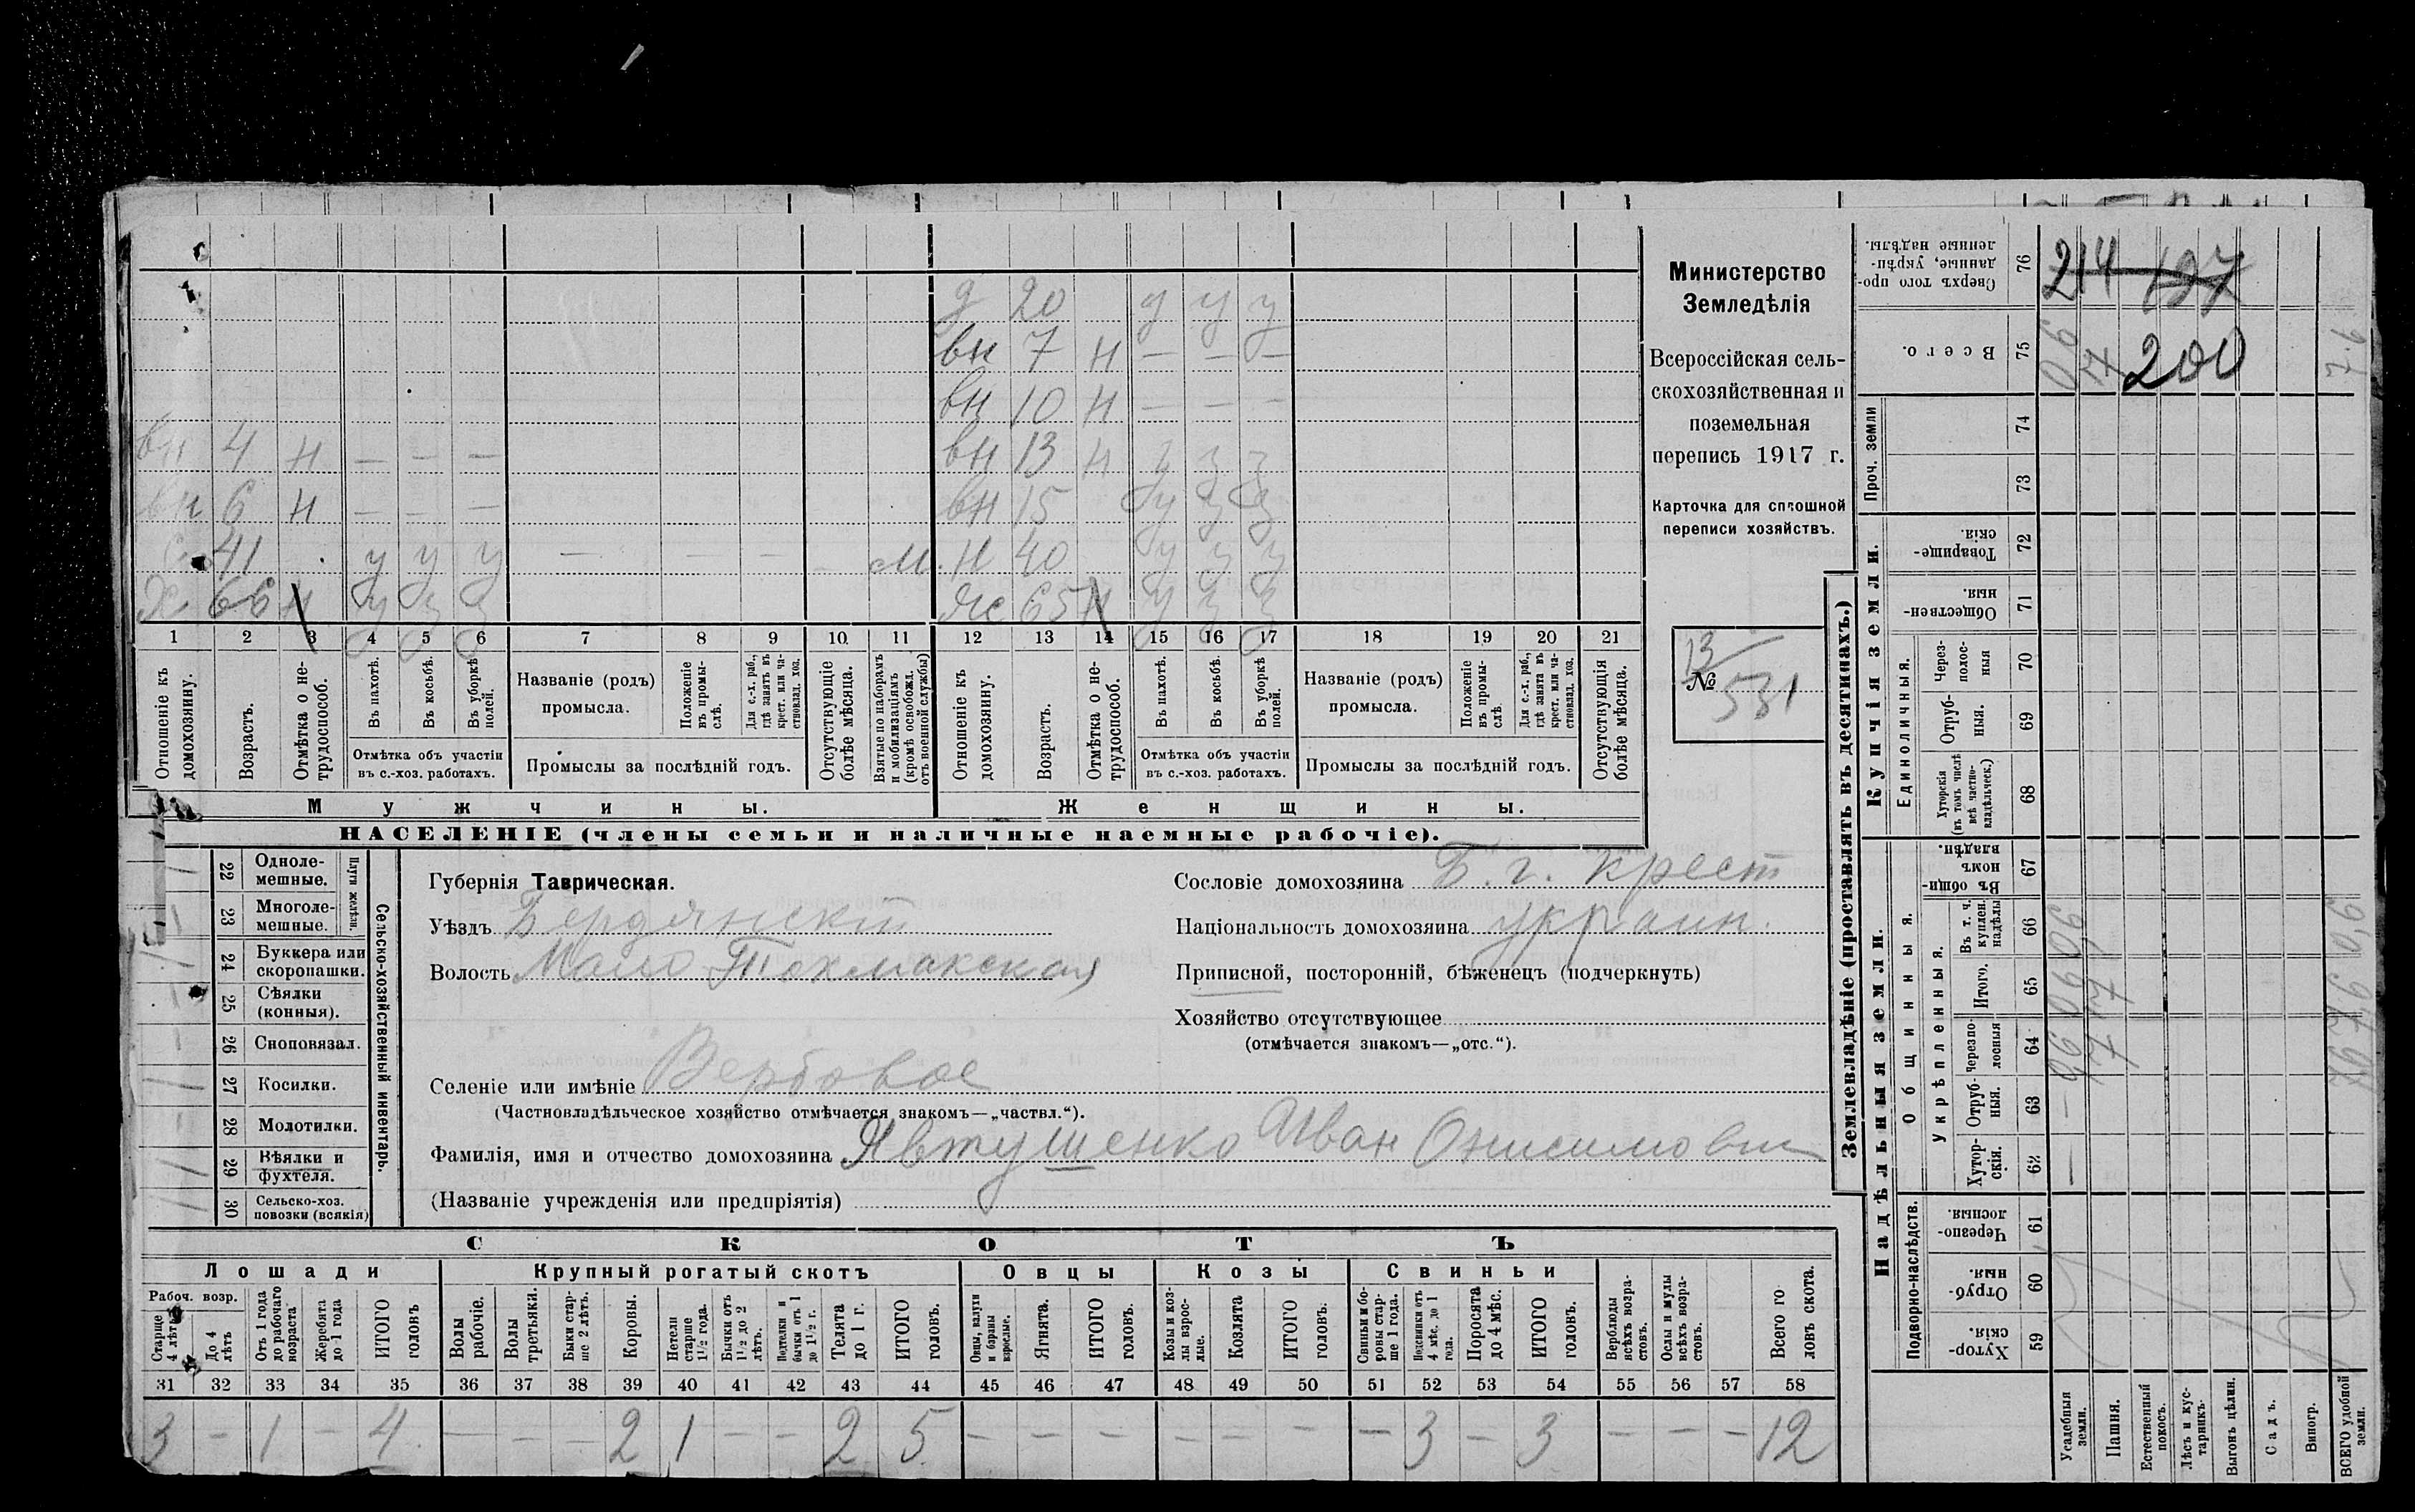 д 20 у у у
вн 7 н — — —
вн 10 н — — —
вн 4 н — — — вн 13 н у у у
вн 6 н — — — вн 15 у у у
41 у у у — — — м. н 40 у у у
Х 66 н у у у же 65 н у у у
1 2 3 4 5 6 7 8 9 10 11 12 13 14 15 16 17 18 19 20 21
Отношеніе къ домохозяину.
Возрастъ.
Отмѣтка о нетрудоспособ.
Въ пахотѣ.
Въ косьбѣ.
Въ уборкѣ полей.
Отмѣтка объ участіи
въ с.-хоз. работахъ.
Названіе (родъ)
промысла.
Положеніе въ промыслѣ.
Для с.-х. раб., гдѣ занятъ въ крест. или частновлад. хоз.
Промыслы за послѣдній годъ.
Отсутствующіе болѣе мѣсяца.
Взятые по наборамъ и мобилизаціямъ (кромѣ освобожд. отъ военной службы)
Отношеніе къ домохозяину.
Возрастъ.
Отмѣтка о нетрудоспособ.
Въ пахотѣ.
Въ косьбѣ.
Въ уборкѣ полей.
Отмѣтка объ участіи
въ с.-хоз. работахъ.
Названіе (родъ)
промысла.
Положеніе въ промыслѣ.
Для с.-х. раб., гдѣ занята въ крест. или частновлад. хоз.
Промыслы за послѣдній годъ.
Отсутствующія болѣе мѣсяца.
Мужчины. Женщины.
НАСЕЛЕНІЕ (члены семьи и наличные наемные рабочіе).
Министерство
Земледѣлія
Всероссійская сель-
скохозяйственная и
поземельная
перепись 1917 г.
Карточка для сплошной
переписи хозяйствъ.
13
№ 531
22 Одноле-
мешные.
23 Многоле-
мешные.
Плуги желѣзн.
24 Буккера или
скоропашки.
25 Сѣялки
(конныя).
26 Сноповязал.
27 Косилки.
28 Молотилки.
29 Вѣялки и
фухтеля.
30 Сельско-хоз.
повозки (всякія)
Сельско-хозяйственный инвентарь.
Губернія Таврическая.
Уѣздъ Бердянскій
Волость Мало Токмакская
Селеніе или имѣніе Вербовое
(Частновладѣльческое хозяйство отмѣчается знакомъ—„частвл.“).
Фамилія, имя и отчество домохозяина Явтушенко Иван Онисимович
(Названіе учрежденія или предпріятія)
Сословіе домохозяина Б. г. крест
Національность домохозяина украин.
Приписной, посторонній, бѣженецъ (подчеркнуть)
Хозяйство отсутствующее
(отмѣчается знакомъ—„отс.“).
СКОТЪ
Лошади Крупный рогатый скотъ Овцы Козы Свиньи
Рабоч. возр.
Старше 4 лѣтъ
До 4 лѣтъ
Отъ 1 года до рабочаго возраста
Жеребята до 1 года
ИТОГО головъ
Волы рабочіе.
Волы третьяки.
Быки старше 2 лѣтъ.
Коровы.
Нетели старше 1½ года.
Бычки отъ 1½ до 2 лѣтъ.
Подтелки и бычки отъ 1 до 1½ г.
Телята до 1 г.
ИТОГО головъ.
Овцы, валухи и бараны взрослые.
Ягнята.
ИТОГО головъ.
Козы и козлы взрослые.
Козлята
ИТОГО головъ.
Свиньи и боровы старше 1 года.
Подсвинки отъ 4 мѣс. до 1 года
Поросята до 4 мѣс.
ИТОГО головъ.
Верблюды всѣхъ возрастовъ.
Ослы и мулы всѣхъ возрастовъ.
Всего головъ скота.
31 32 33 34 35 36 37 38 39 40 41 42 43 44 45 46 47 48 49 50 51 52 53 54 55 56 57 58
3 — 1 — 4 — — — 2 1 — — 2 5 — — — — — — — 3 — 3 — — — 12
Землевладѣніе (проставлять въ десятинахъ.)
Сверхъ того проданные, укрѣпленные надѣлы. 76 214 127
Всего. 75 06 7 200 7.6
Проч. земли
74
73
Купчія земли.
Товарищескія. 72
Общественныя. 71
Единоличныя.
Черезполосныя 70
Отрубныя. 69
Хуторскія (въ томъ числѣ всѣ частновладѣльческ.) 68
Надѣльныя земли.
Общинныя.
Въ общиномъ владѣн. 67
Укрѣпленныя.
Въ т. ч. куплен. надѣлы 66
Итого. 65
Черезполосныя 64
Отрубныя. 63
Хуторскія. 62
Подворно-наслѣдств.
Черезполосныя. 61
Отрубныя. 60
Хуторскія. 59
Усадебныя земли.
Пашня.
Естественный покосъ.
Лѣсъ и кустарникъ.
Выгонъ цѣлин.
Садъ.
Виногр.
ВСЕГО удобной земли.